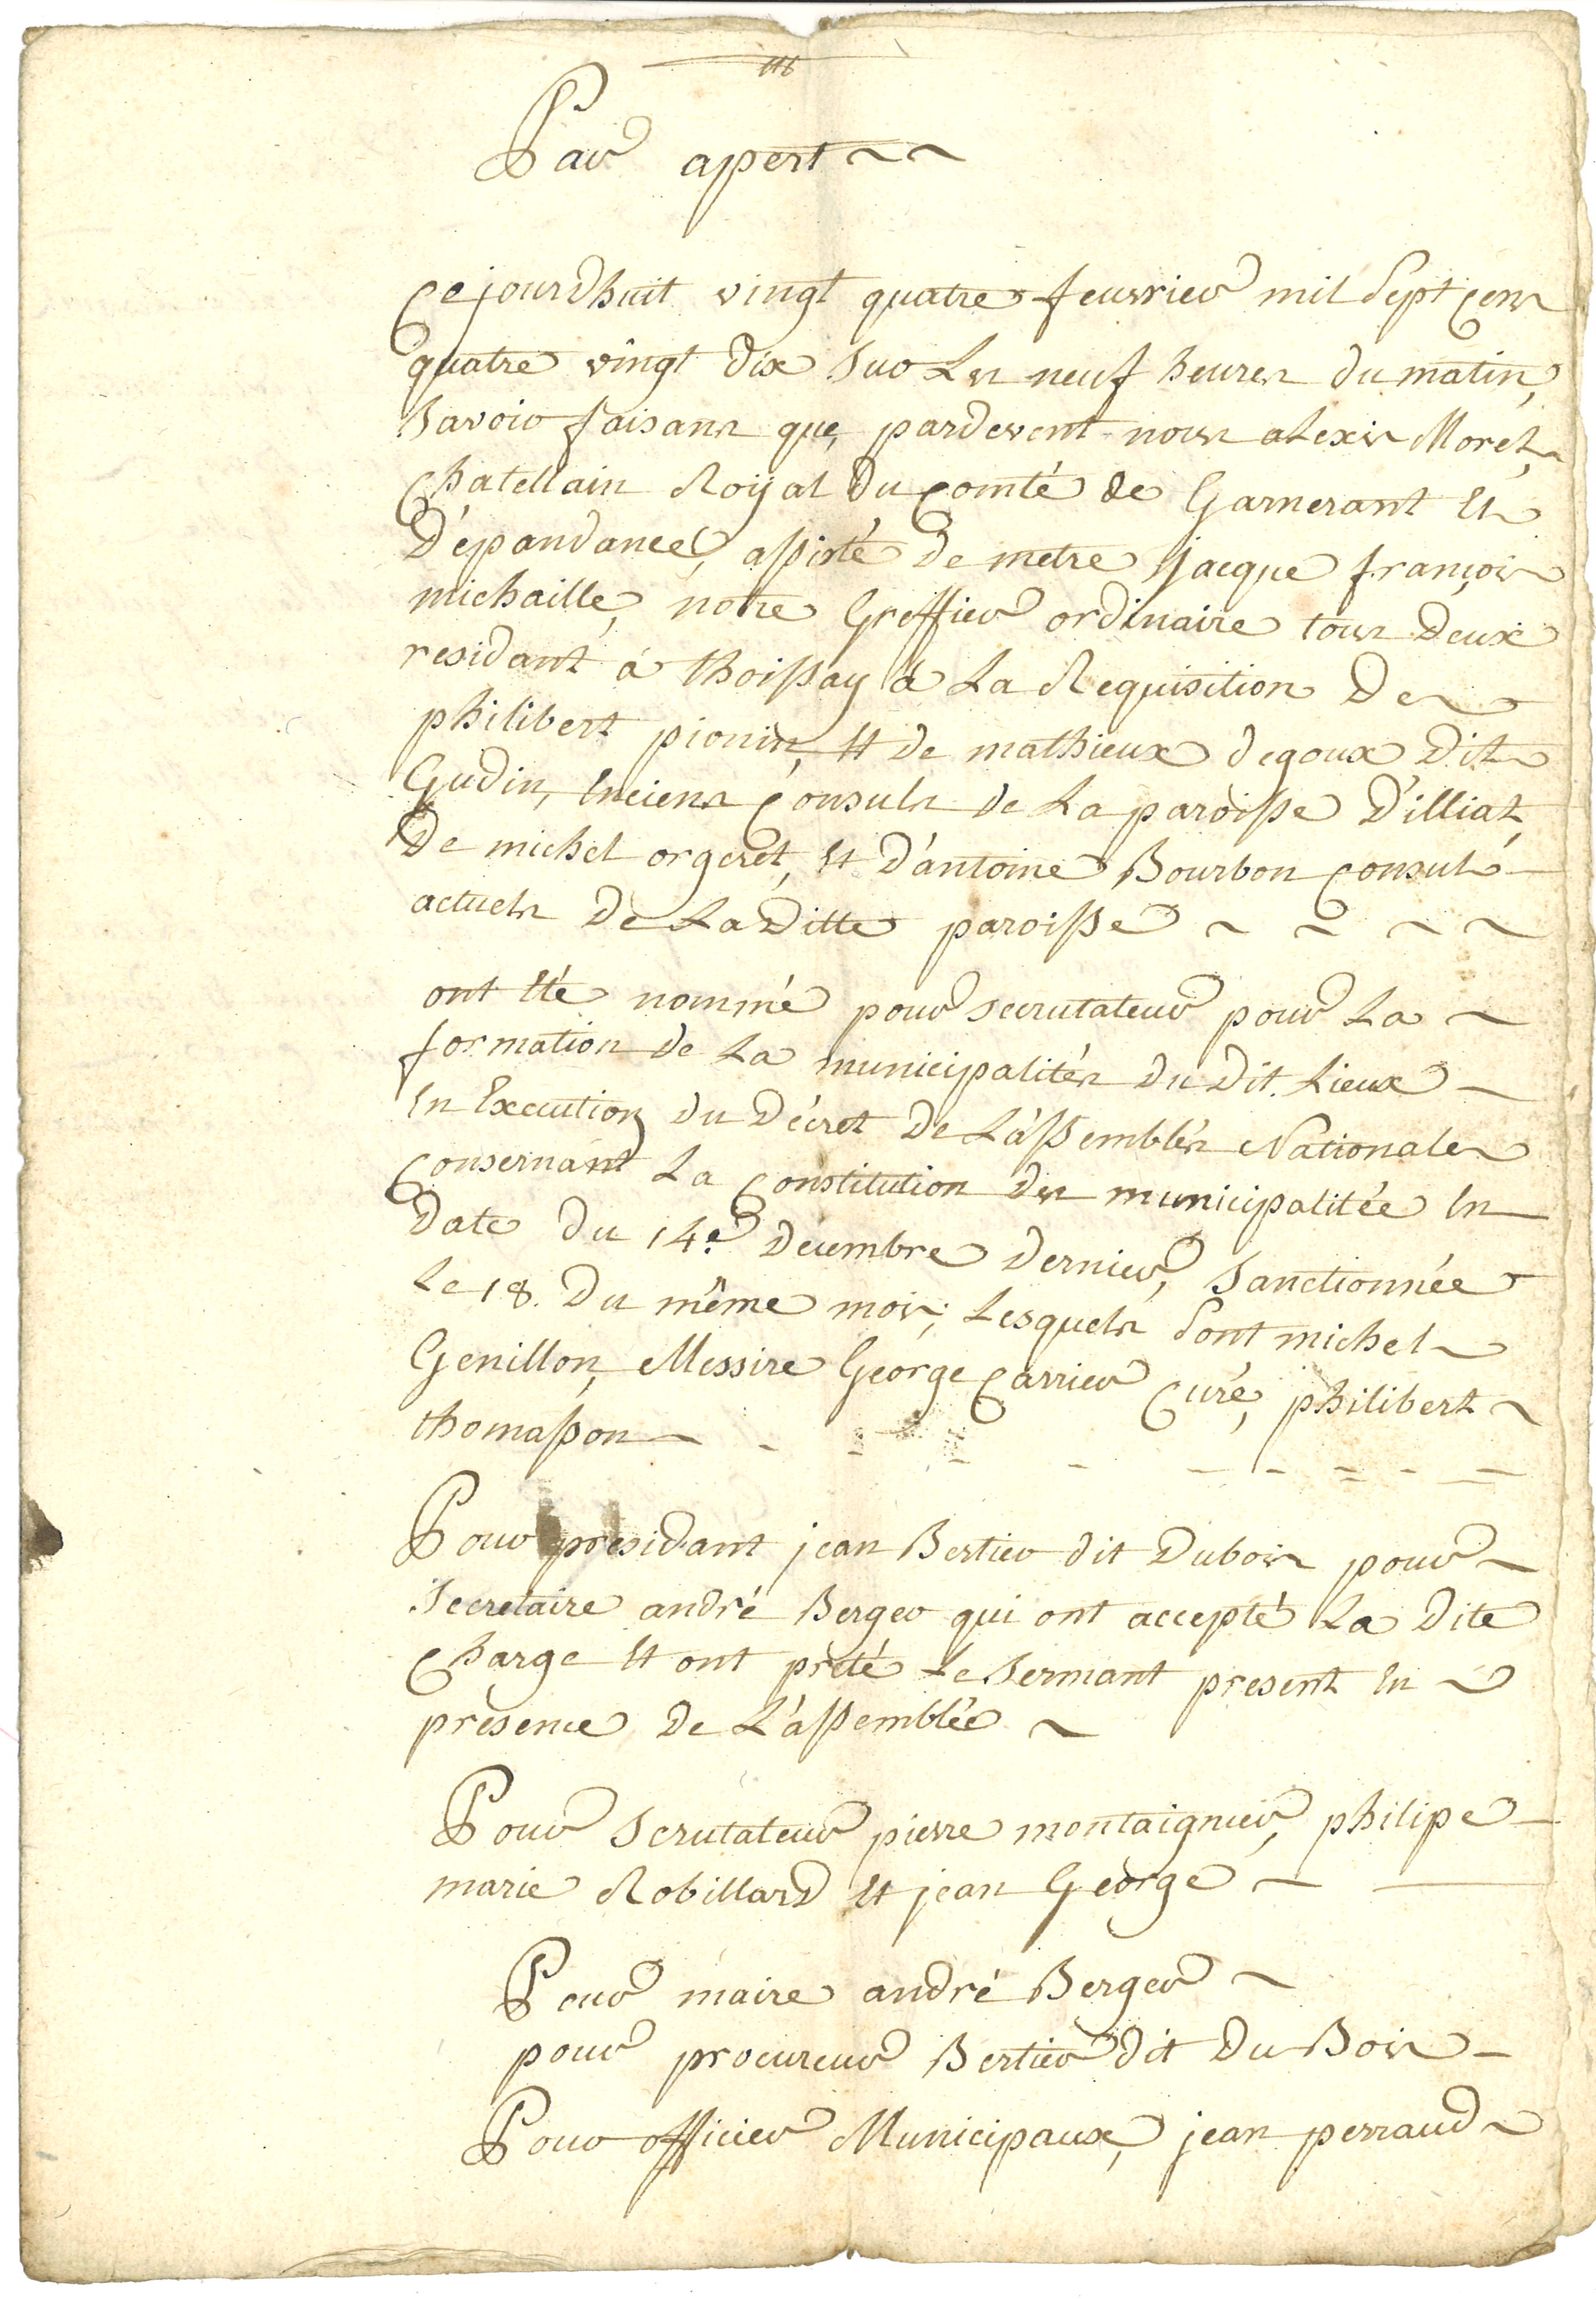 Par apert
Cejourdhuit vingt quatre feuvrier mil Sept Cens
quatre vingt dix Sur Les neuf heures du matin,
Savoir faisans que, pardevent nous alexis Morel,
Chatellain Royal du Comté de Garnerant Et
Dépandance, assisté de metre jacque françois
michaille, notre Greffier ordinaire tous deux
residant à thoissay à La Requisition De
philibert pionin, Et de mathieux degoux Dit
Gudin, Enciens Consuls de La paroisse D'illiat,
De michel orgeret, Et D'antoine Bourbon Consuls
actuels De La Ditte paroisse
ont Eté nommé pour secrutateur pour La
formation de La municipalités du Dit Lieux
En Execution du Décret De L'assemblés Nationales
Consernant La Constitution des municipalitée En
Date du 14e Decembre dernier, Sanctionnée
Le 18. Du même mois; Lesquels Sont michel
Genillon, Messire George Carrier Curé, philibert
thomasson
Pour présidant jean Bertier dit Dubois pour
Secretaire andré Berger qui ont accepté La Dite
Charge Et ont prêté Le Sermant present En
présence De L'assemblée
Pour Scrutateur pierre montaignier, philipe
marie Robillard Et jean George
Pour maire andré Berger
pour procureur Bertier dit Du Bois
Pour officier Municipaux, jean perraud